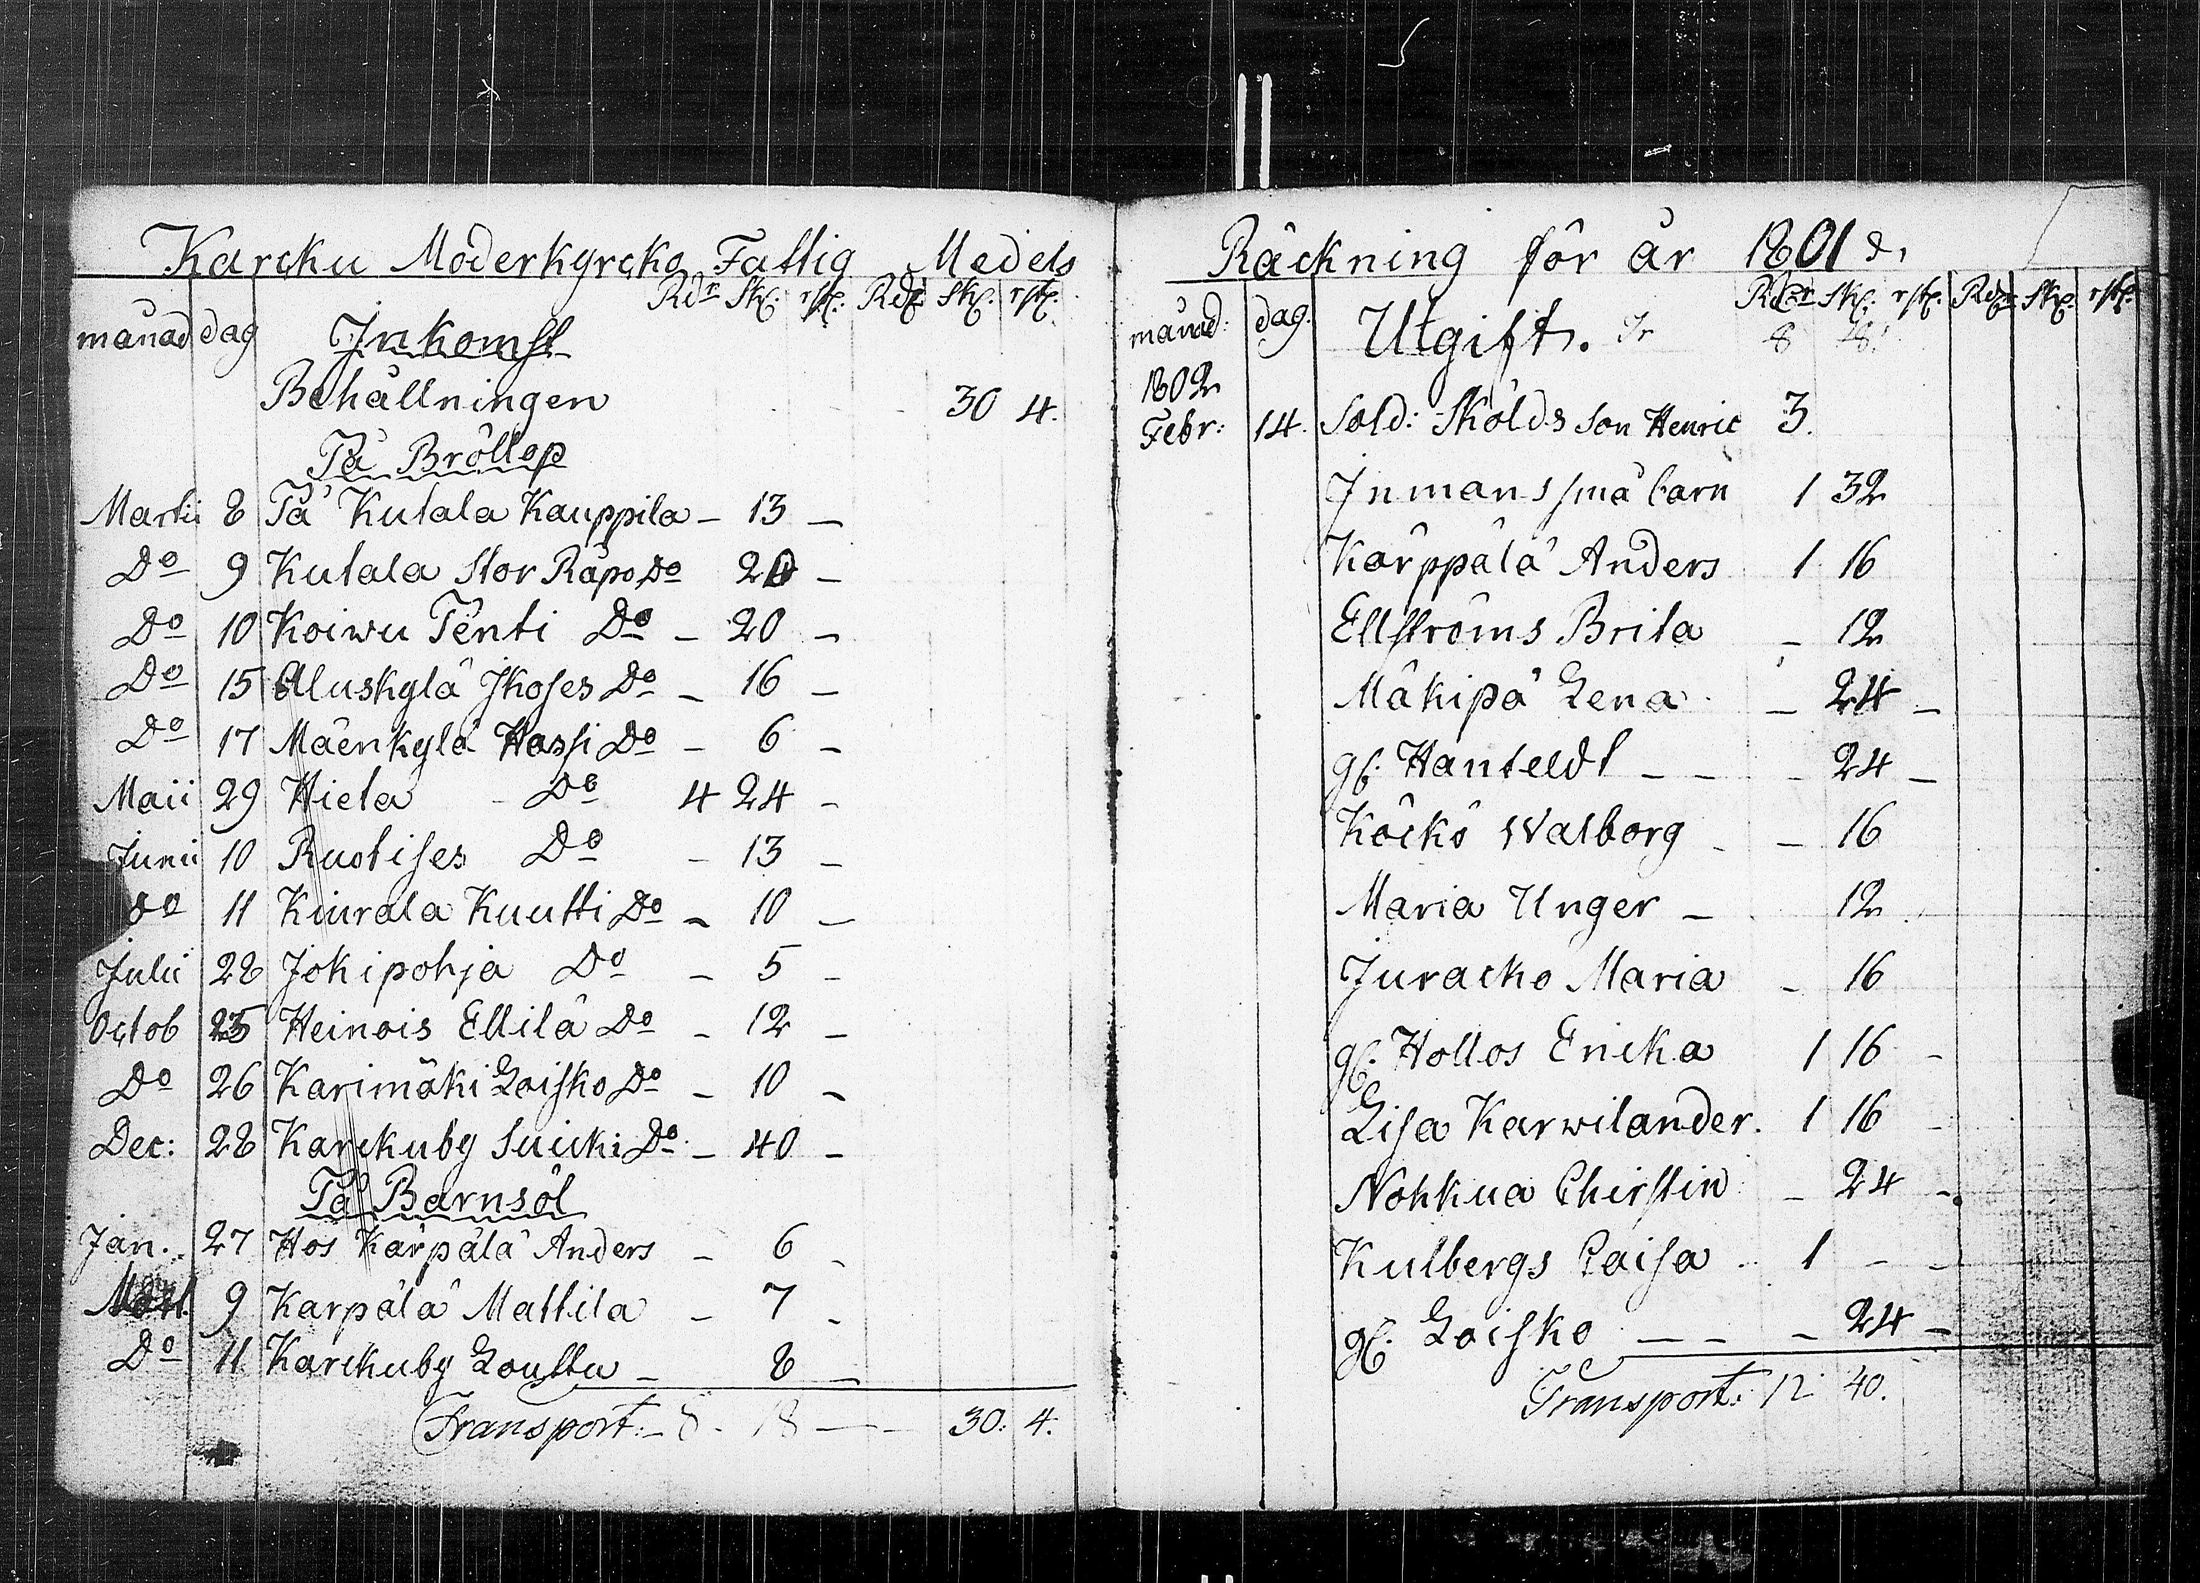 Karcku Moderkyrcko Fattig Medels
Rdr Sk: rst. Rdr Sk: rst.
månad dag Inkomst
Behållningen 30 4.
På Bröllop
Martii 8 På Kutala Kauppila - 13 -
Do 9 Kutala Stor Räpo Do 20 -
Do 10 Koiwu Penti Do - 20 -
Do 15 Aluskylä Ikoses Do - 16 -
Do 17 Mäenkylä Hassi Do - 6 -
Maii 29 Hieta - Do 4 24 -
Junii 10 Ruotises Do - 13 -
Do 11 Kiurala Kuutti Do - 10 -
Julii 28 Jokipohja Do - 5 -
Octob 25 Heinois Ellilä Do - 12 -
Do 26 Karimäki Loisko Do - 10 -
Dec: 28 Karckuby Suicki Do - 40 -
På Barnsöl
Jan. 27 Hos Kärpälä Anders - 6 -
Mart. 9 Karpälä Mattila - 7 -
Do 11 Karckuby Louttu - 8 -
Transport: - 8 - 18 - - 30: 4.
Räckning för år 1801
Rdr Sk: rst. Rdr Sk: rst.
månad: dag. Utgift.
1802
Febr: 14. Sold: Skölds Son Henric 3.
Inmans små barn 1 32
Kärppälä Anders 1 16
Ellströms Brita - 12
Mäkipä Lena - 24 -
gf. Hanteldt - - - 24 -
Köckö Walborg - - 16
Maria Unger - 12
Juracko Maria - 16
gf. Hollos Ericka 1 16 -
Lisa Karwilander. 1 16 -
Nohkua Chirstin - 24 -
Kulbergs Caisa 1 - -
gf. Loisko - - - 24 -
Transport: 12 40.